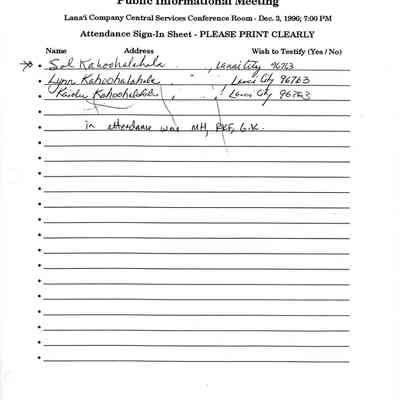 Public Informational Meeting
Lana'i Company Central Services Conference Room - Dec. 3, 1996; 7:00 PM
Attendance Sign-In Sheet - PLEASE PRINT CLEARLY
Name Address Wish to Testify (Yes / No)
Sol Kahoohalahala , Lanai City 96763
Lynn Kahoohalahala " , Lanai City 96763
Kahoohalahala " , Lanai City 96763
in attendance was MH, RKF, G.K.